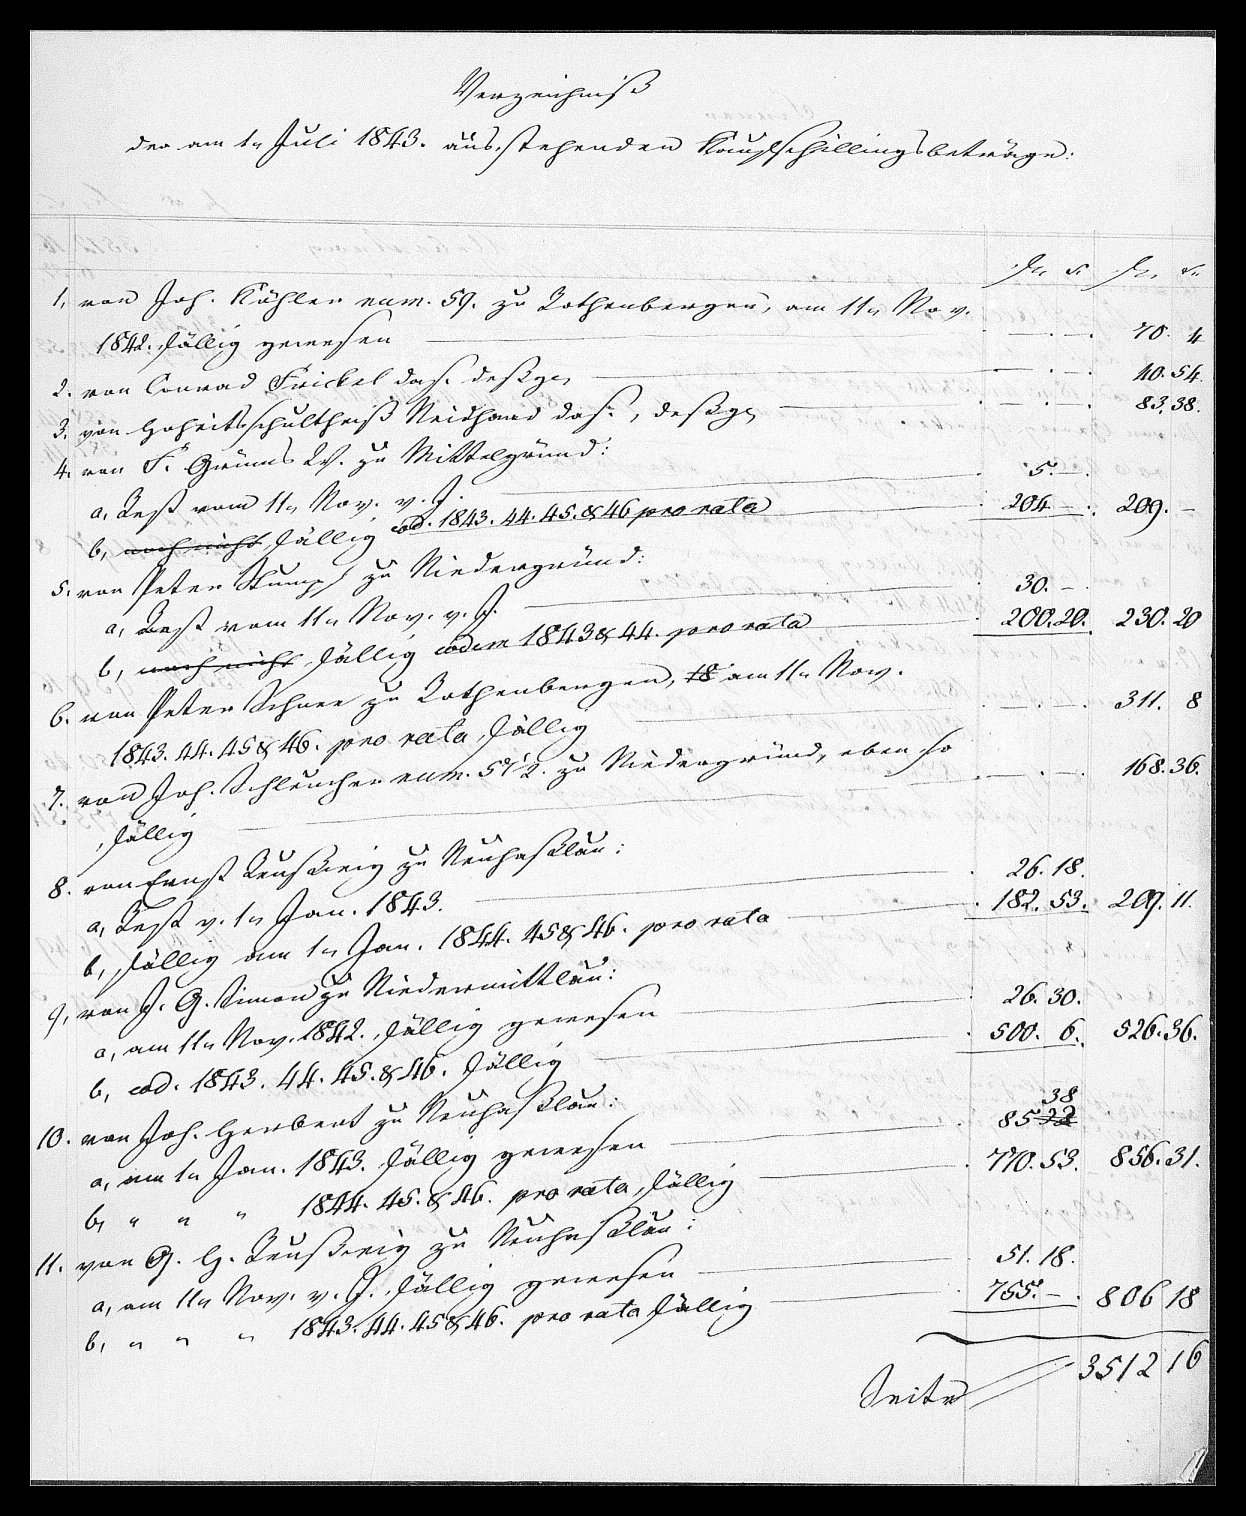 Verzeichniß
der am 1n Juli 1843. ausstehenden Kaufschillingsbeträge:
fl. x. fl. x.
1, von Joh. Köhler num. 59. zu Rothenbergen, am 11n Nov.
1842. fällig gewesen — 70. 4
2. von Conrad Frickel das. desgl. — 40. 54.
3. von Hoheitsschultheiß Neidhard das., desgl. — 83. 38.
4. von F. Grimms W. zu Mittelgründ:
a, Rest vom 11n Nov. v. J. — 5. —
b, noch nicht fällig eod. 1843. 44. 45. & 46 pro rata — 204 — 209. —
5. von Peter Stumpf zu Niedergründ:
a, Rest vom 11n Nov. v. J. — 30. —
b, noch nicht fällig eodem 1843 & 44. pro rata — 200. 20. 230. 20
6. von Peter Schner zu Rothenbergen, 18 am 11n Nov.
1843. 44. 45 & 46. pro rata fällig — 311. 8
7. von Joh. Schleucher num. 5 1/2. zu Niedergründ, eben so
fällig — 168. 36.
8. von Ernst zu Neuhaßlau:
a, Rest v. 1n Jan. 1843. — 26. 18.
b, fällig am 1n Jan. 1844. 45 & 46. pro rata — 182. 53. 209. 11.
9, von J. G. Simon zu Niedermittlau:
a, am 11n Nov. 1842. fällig gewesen — 26. 30.
b, eod. 1843. 44. 45. & 46. fällig — 500. 6. 526. 36.
10. von Joh. Herbert zu Neuhaßlau:
38
a, am 1n Jan. 1843. fällig gewesen — 85 32
b, " " " 1844. 45. & 46. pro rata fällig — 770. 53. 856. 31.
11. von G. H. zu Neuhaßlau:
a, am 11n Nov. v. J. fällig gewesen — 51. 18.
b, " " " 1843. 44. 45 & 46. pro rata fällig — 755. — 806 18
Seite 3512 16